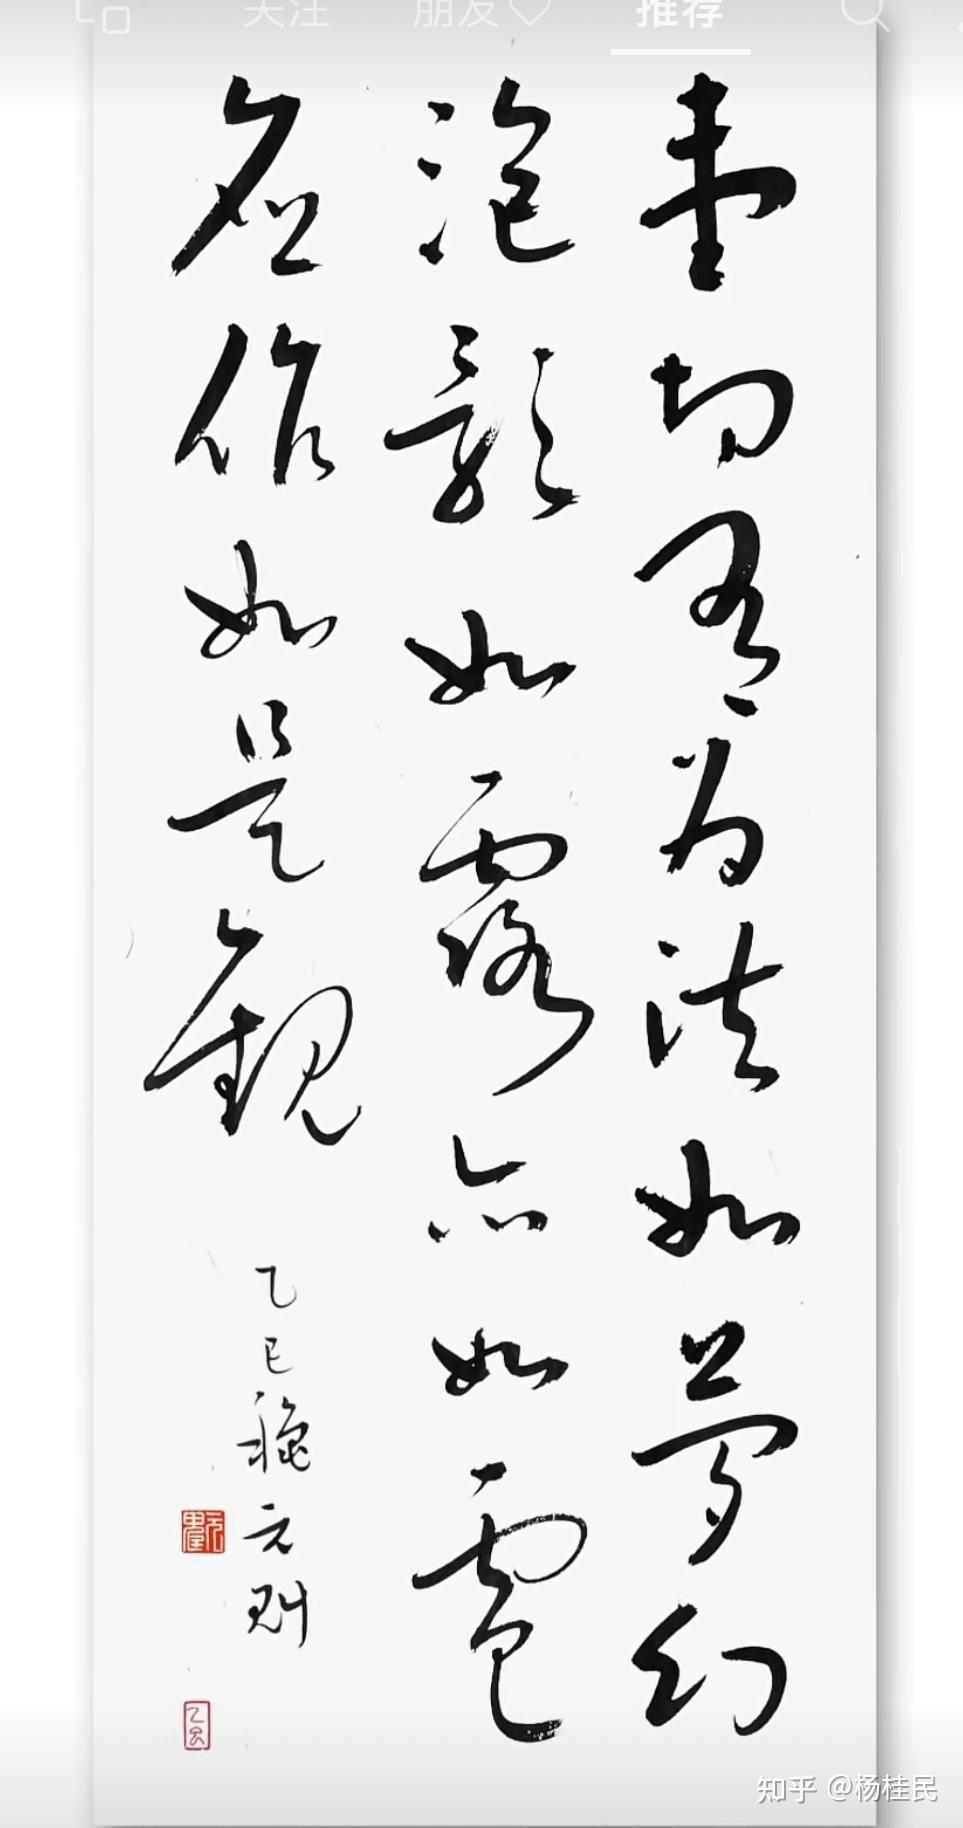 关注 朋友♡ 推荐
壹切有为法如梦幻
泡影如露亦如電
应作如是観
乙巳龝元则
知乎 @杨桂民